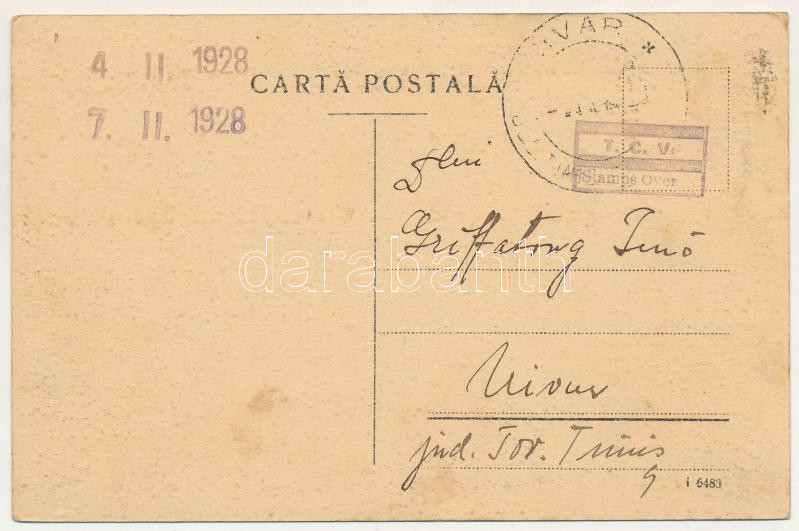 4 II. 1928
7. II. 1928
CARTĂ POSTALĂ
UIVAR *
T. C. V.
Stamps Over
Dlui
Jenö
darabanth
Uivar
jud. Tor. Timis
i 6483